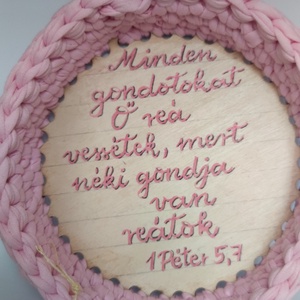 Minden
gondotokat
Ő reá
vessétek, mert
néki gondja
van
reátok
1 Péter 5,7